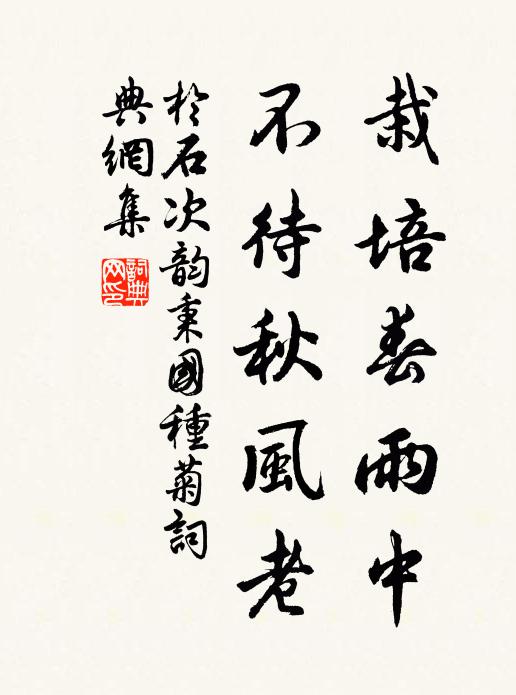 栽培春雨中
不待秋風老
於石次韵秉國種菊詞
典網集
詞典
网印